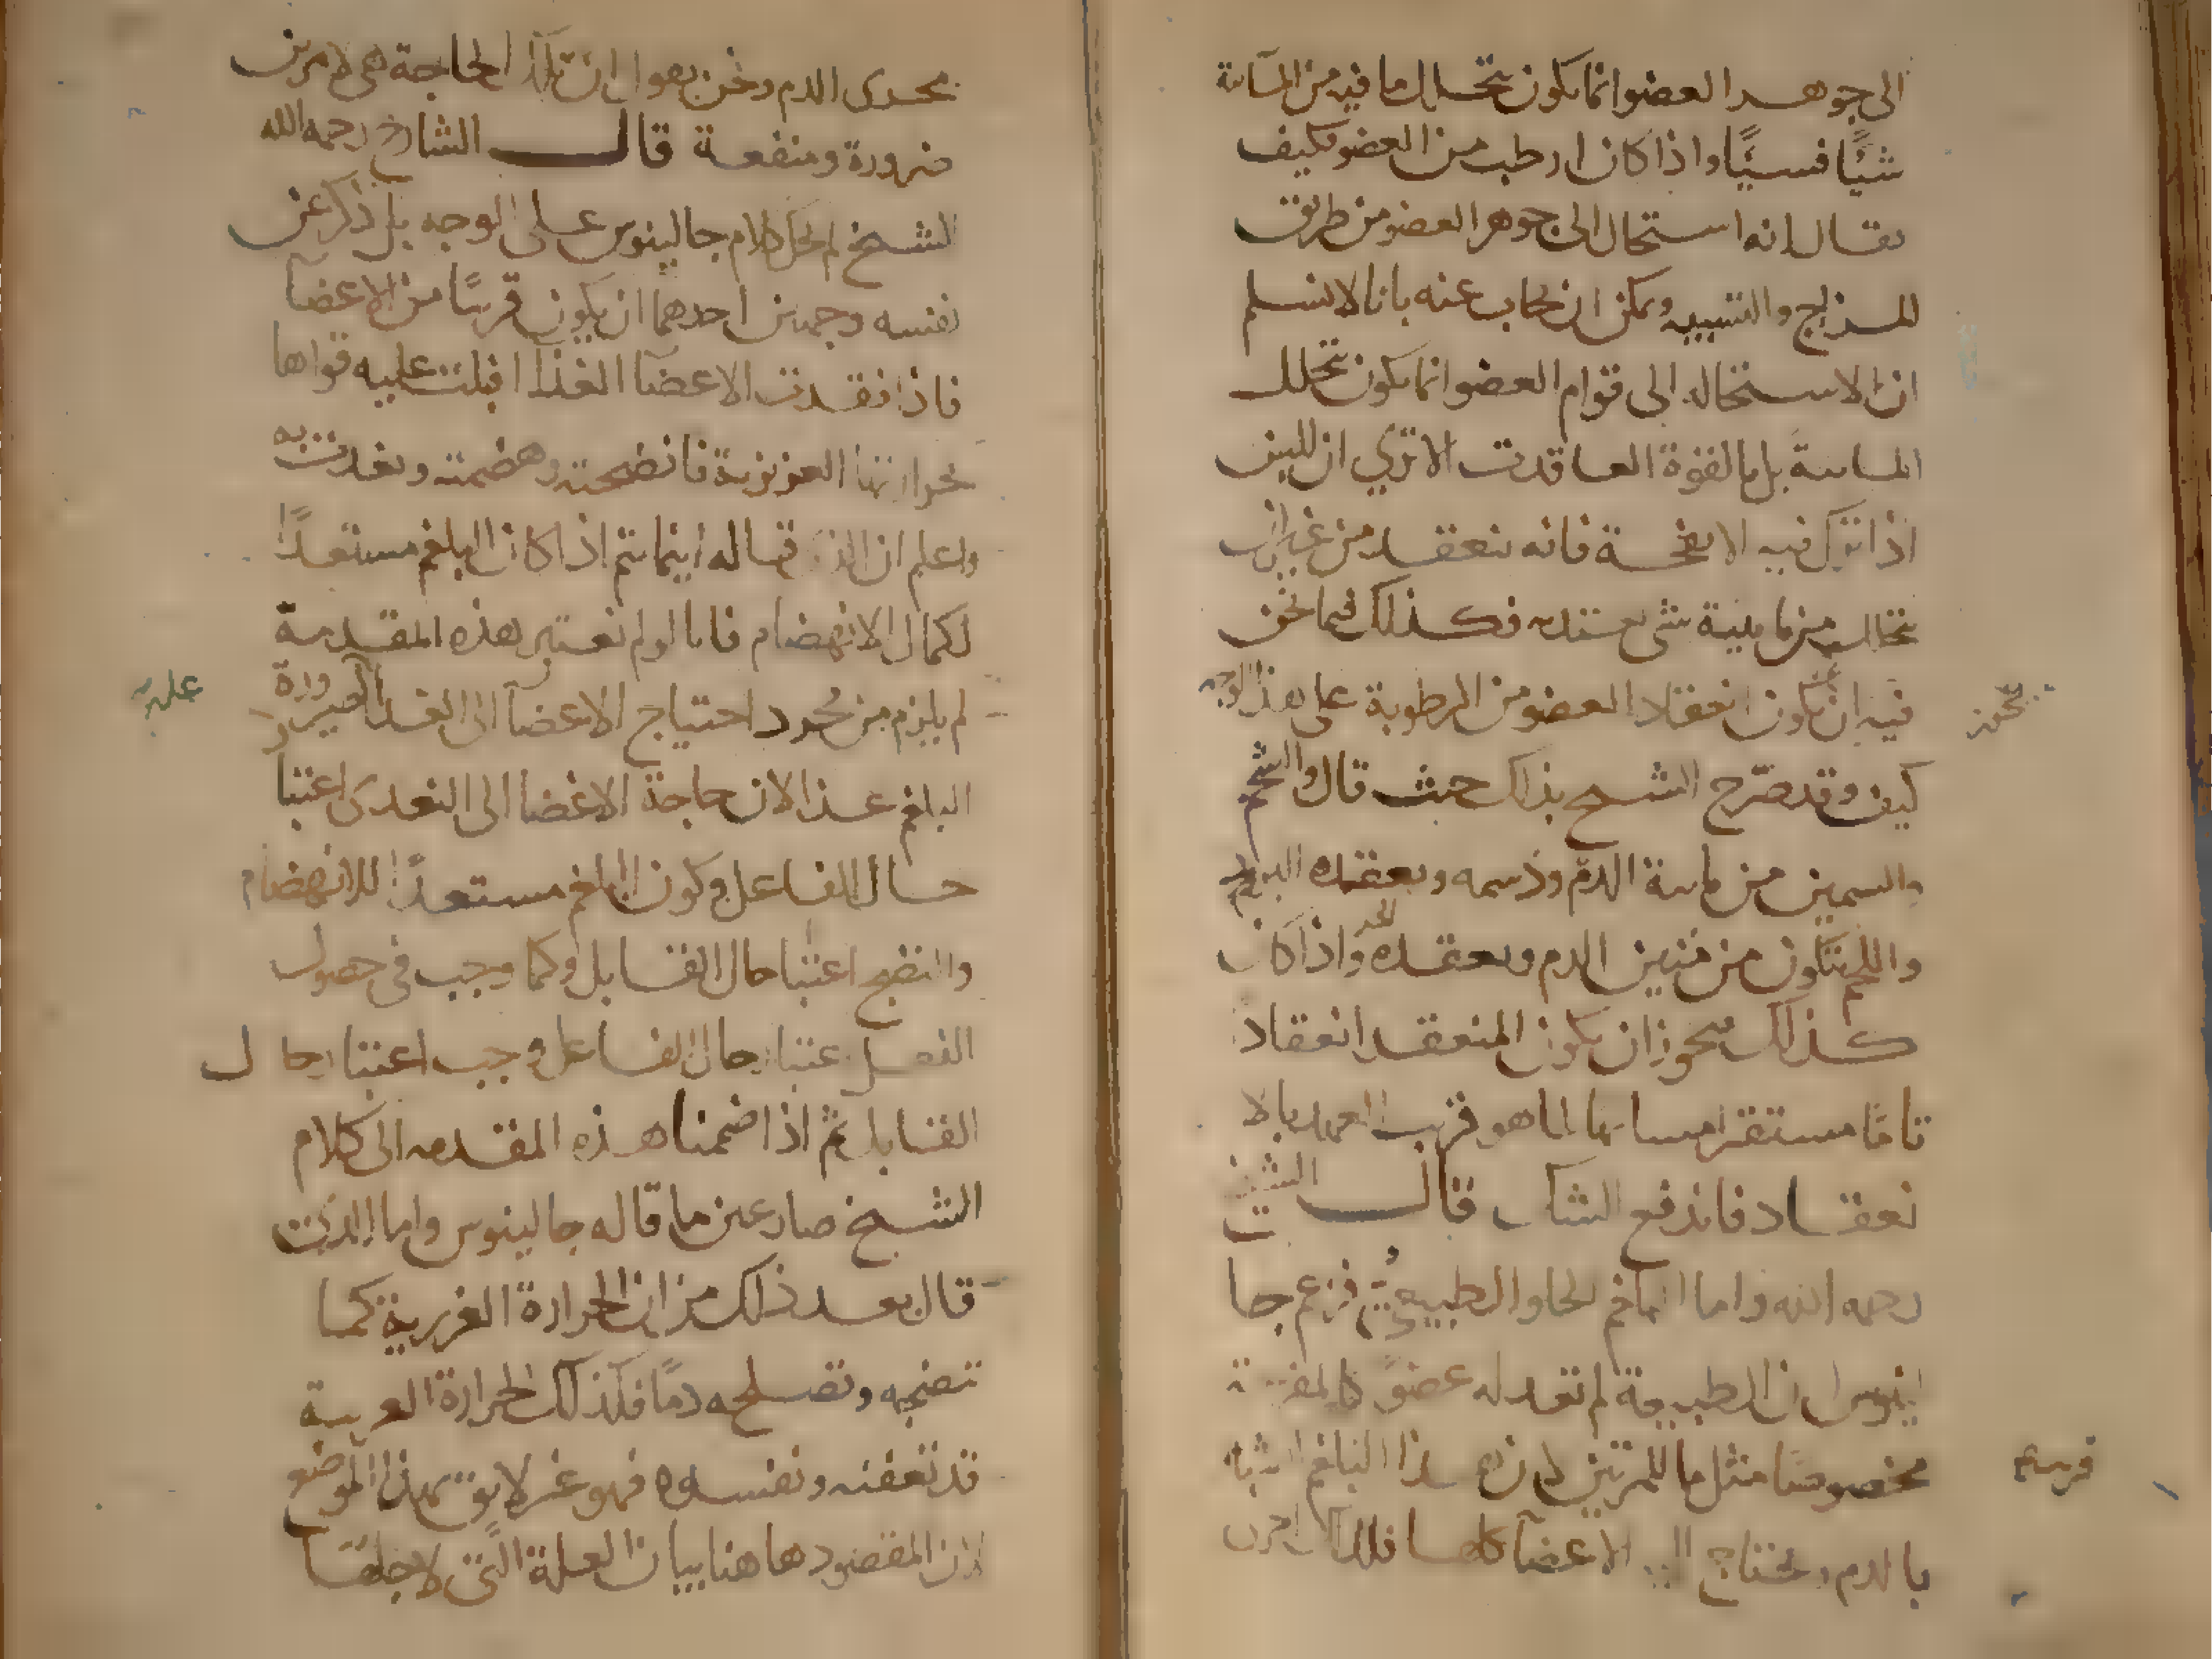 الى جوهر العضو انما يكون بتحلل ما فيه من المائية
شيًا فسيًا واذا كان ارطب من العضو فكيف
يقال انه استحال الى جوهر العضو من طريق
المزج والتشبيه ويمكن ان يجاب عنه بانا لا نسلم
ان الاستحالة الى قوام العضو انما يكون بتحلل
المايية بل بالقوة العاقدة الا تري ان اللبن
اذا ترك فيه الانفحة فانه ينعقد من غير ان
يتحلل من مايية شي يعتد به فكذلك فيما نحن
فيه ان يكون انعقاد العضو من الرطوبة على هذا الوجه
يجوز
كيف وقد صرح الشيخ بذلك حيث قال والشحم
والسمين من مايية الدم ودسمه ويعقده البرد
واللحم يتكون من متين الدم ويعقده الحر واذا كان
كذلك فيجوز ان يكون المنعقد انعقادا
تامًا مستقرا مشابها لما هو قريب العهد بالا
نعقاد فاندفع الشك قال الشيخ
رحمه الله واما البلغم الحلو الطبيعي فزعم جا
لينوس ان الطبيعة لم تعد له عضوً كالمفرغة
مخصوصًا مثل ما للمرتين لان هذا البلغم
بالدم ويحتاج اليه الاعضآ كلها فلذلك اجرى
مجرى الدم ونحن نقول ان تلك الحاجة هي لامرين
ضرورة ومنفعة قال الشارح رحمه الله
الشيخ لم يحك كلام جالينوس على الوجه بل ذكر عن
نفسه وجهين احدهما ان يكون قريبًا من الاعضآ
فاذا فقدت الاعضآ الغذآ اقبلت عليه قواها
بحرارتها الغريزية فانضجته وهضمته وتغدت به
واعلم ان الذي قاله انما يتم اذا كان البلغم مستعدًا
لكمال الانهضام فانا لو لم نعتبر هذه المقدمة
لم يلزم من مجرد احتياج الاعضآ الى الغدآ صيرورة
البلغم غذا لان حاجة الاعضا الى التغدى اعتبا
حال الفاعل وكون البلغم مستعدًا للانهضام
والنضج اعتبا حال القابل وكما وجب في حصول
الفعل اعتبار حال الفاعل وجب اعتبار حال
القابل ثم اذا ضممنا هذه المقدمه الى كلام
الشيخ صار عين ما قاله جالينوس واما الذي
قال بعد ذلك من ان الحرارة الغريزية كما
تنضجه وتصلحه دمًا فكذلك الحرارة الغريبة
قد تعفنه وتفسده فهو غير لايق بهذا الموضع
لان المقصود هاهنا بيان العلة التي لاجلها